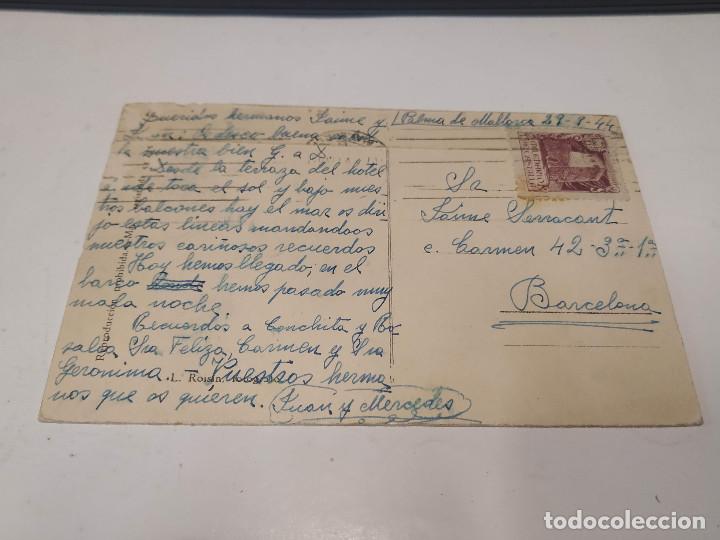 Queridos hermanos Jaime y
deseo buena salud
la nuestra bien G. a D.
Desde la terraza del hotel
toca el sol y bajo nues
tros balcones hay el mar os diri
jo estas lineas mandandoos
nuestros cariñosos recuerdos
Hoy hemos llegado, en el
barco hemos pasado muy
mala noche
Recuerdos a Conchita y Ro
salia Sra Feliza, Carmen y Sra
Geronima - Vuestros herma
nos que os quieren. Juan y Mercedes
Palma de Mallorca 29-8-44
Sr
Jaime Serracant
c. Carmen 42-3ª-1ª
Barcelona
CORREOS
Reproducción prohibida
L. Roisin, fotógrafo
todocoleccion
todocoleccion.net